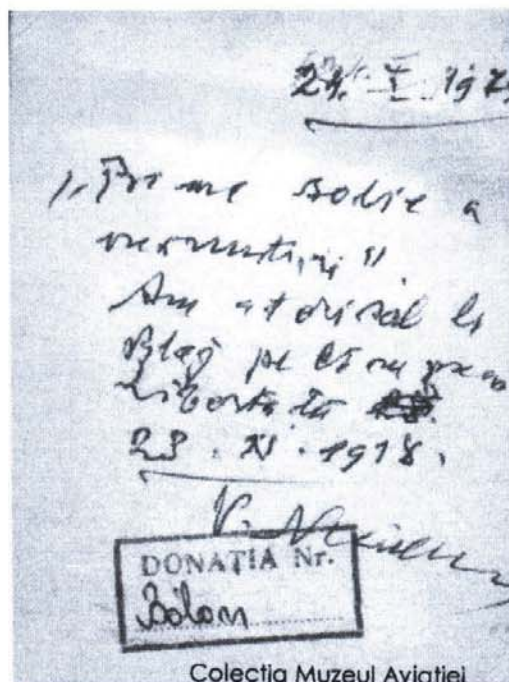 „Prima solie a
Am aterizat la
Blaj pe Câmpia
Libertății
23. XI. 1918.
V. Niculescu
DONAȚIA Nr.
Colecția Muzeul Aviației